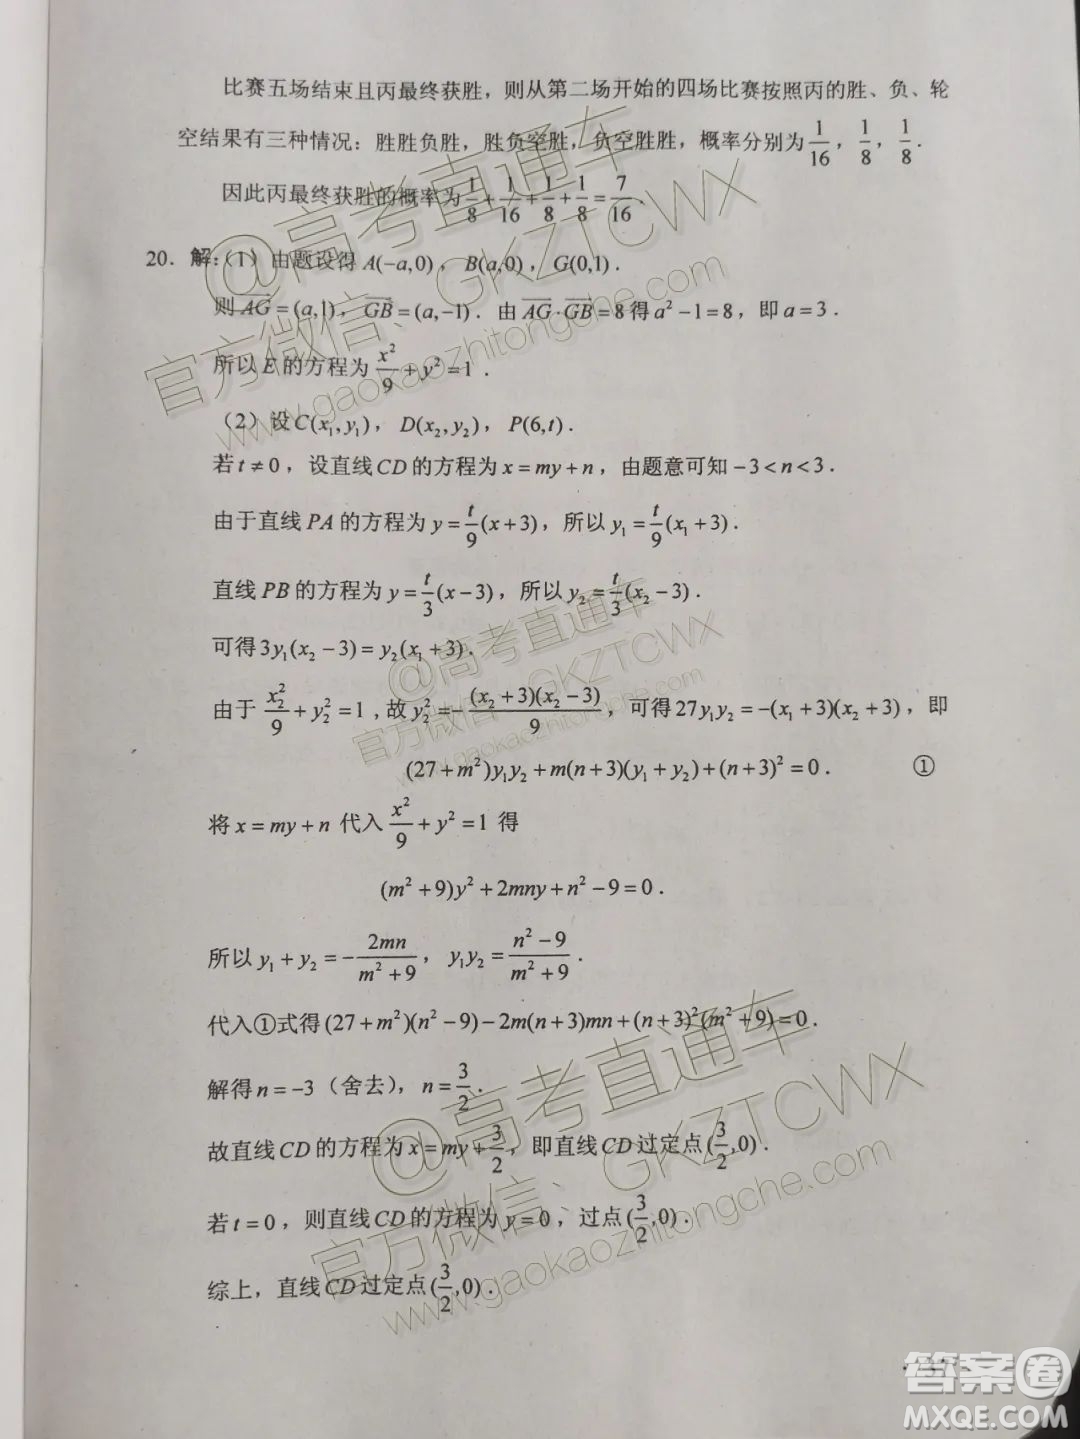 比赛五场结束且丙最终获胜，则从第二场开始的四场比赛按照丙的胜、负、轮
空结果有三种情况：胜胜负胜，胜负空胜，负空胜胜，概率分别为 1/16，1/8，1/8．
因此丙最终获胜的概率为 1/8+1/16+1/8+1/8=7/16．
20．解：（1）由题设得 A(−a,0)，B(a,0)，G(0,1)．
则 AG=(a,1)，GB=(a,−1)．由 AG·GB=8 得 a²−1=8，即 a=3．
所以 E 的方程为 x²/9+y²=1．
（2）设 C(x₁,y₁)，D(x₂,y₂)，P(6,t)．
若 t≠0，设直线 CD 的方程为 x=my+n，由题意可知 −3<n<3．
由于直线 PA 的方程为 y=t/9(x+3)，所以 y₁=t/9(x₁+3)．
直线 PB 的方程为 y=t/3(x−3)，所以 y₂=t/3(x₂−3)．
可得 3y₁(x₂−3)=y₂(x₁+3)．
由于 x₂²/9+y₂²=1，故 y₂²=−(x₂+3)(x₂−3)/9，可得 27y₁y₂=−(x₁+3)(x₂+3)，即
(27+m²)y₁y₂+m(n+3)(y₁+y₂)+(n+3)²=0． ①
将 x=my+n 代入 x²/9+y²=1 得
(m²+9)y²+2mny+n²−9=0．
所以 y₁+y₂=−2mn/(m²+9)，y₁y₂=(n²−9)/(m²+9)．
代入①式得 (27+m²)(n²−9)−2m(n+3)mn+(n+3)²(m²+9)=0．
解得 n=−3（舍去），n=3/2．
故直线 CD 的方程为 x=my+3/2，即直线 CD 过定点 (3/2,0)．
若 t=0，则直线 CD 的方程为 y=0，过点 (3/2,0)．
综上，直线 CD 过定点 (3/2,0)．
@高考直通车
官方微信：GKZTCWX
www.gaokaozhitongche.com
@高考直通车
官方微信：GKZTCWX
www.gaokaozhitongche.com
@高考直通车
官方微信、GKZTCWX
www.gaokaozhitongche.com
答案卷
MXQE.COM